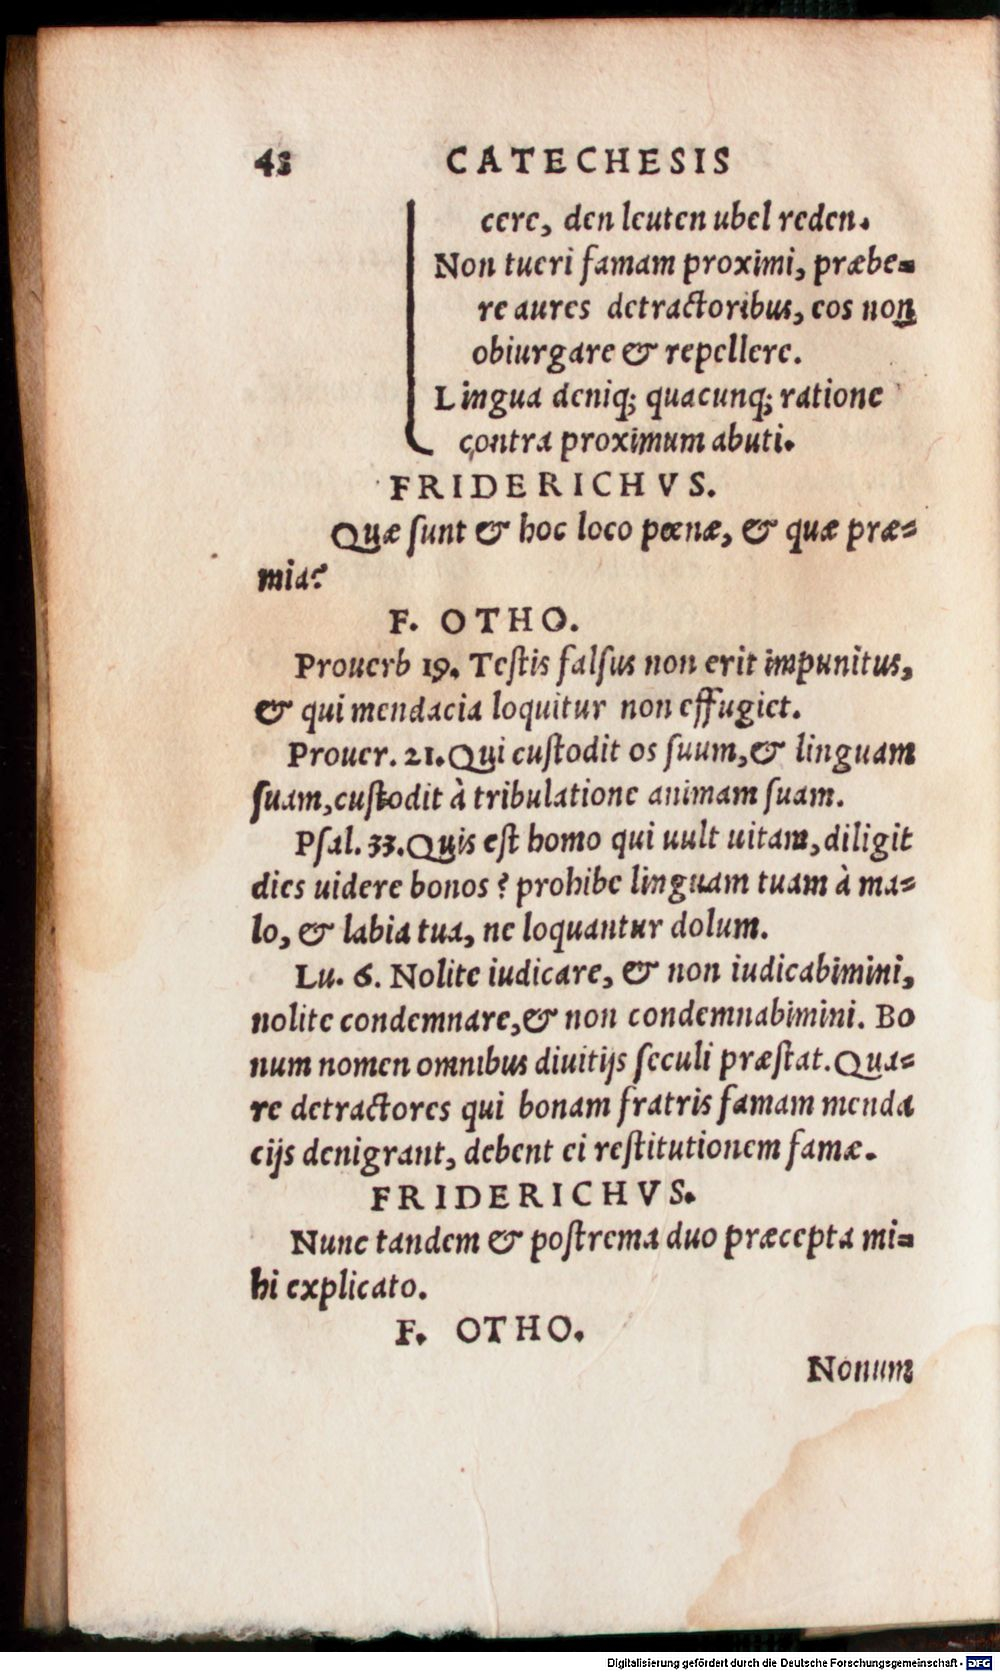 48 CATECHESIS
cere, den leuten ubel reden.
Non tueri famam proximi, præbe=
re aures detractoribus, eos non
obiurgare & repellere.
Lingua deniq; quacunq; ratione
contra proximum abuti.
FRIDERICHVS.
Quæ sunt & hoc loco pœnæ, & quæ præ=
mia?
F. OTHO.
Prouerb 19. Testis falsus non erit impunitus,
& qui mendacia loquitur non effugiet.
Prouer. 21. Qui custodit os suum, & linguam
suam, custodit à tribulatione animam suam.
Psal. 33. Quis est homo qui uult uitam, diligit
dies uidere bonos? prohibe linguam tuam à ma=
lo, & labia tua, ne loquantur dolum.
Lu. 6. Nolite iudicare, & non iudicabimini,
nolite condemnare, & non condemnabimini. Bo
num nomen omnibus diuitijs seculi præstat. Qua=
re detractores qui bonam fratris famam menda
cijs denigrant, debent ei restitutionem famæ.
FRIDERICHVS.
Nunc tandem & postrema duo præcepta mi=
hi explicato.
F. OTHO.
Nonum
Digitalisierung gefördert durch die Deutsche Forschungsgemeinschaft - DFG